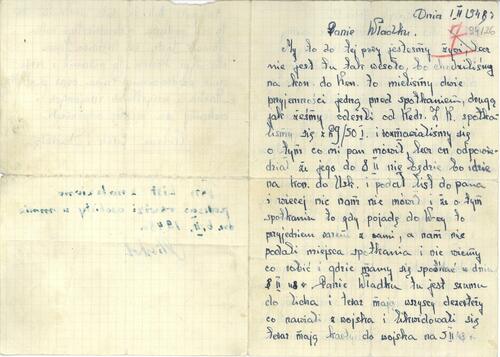 Dnia 1 II 1948 r
7
94/26
Panie Władku.
My to do tej pory jesteśmy żywi, lecz
nie jest tu tak wesoło, bo chodziliśmy
na kon. do Ken. to mieliśmy dwie
przyjemności jedną pred spotkaniem, drugą
jak żeśmy odeszli od Kedr. Z K. spotka-
liśmy się z 29/30 I. i rozmawialiśmy się
o tym co mi pan mówił lecz on odpowie-
dział że jego do 8 II nie będzie bo idzie
na kon. do Usk. i podał list do pana
i więcej nic nam nie mówił i że o tym
spotkaniu to gdy pojadę do Krzy to
przyjedziem razem z wami, a nam nie
podali miejsca spotkania i nie wiemy
co robić i gdzie mamy się spotkać w dniu
8 II 48 r. Panie Władku tu jest szumu
do licha i teraz mają wszyscy dezerterzy
co nawiali z wojska i likwidowali się
teraz mają karty do wojska na 5 II 48 r